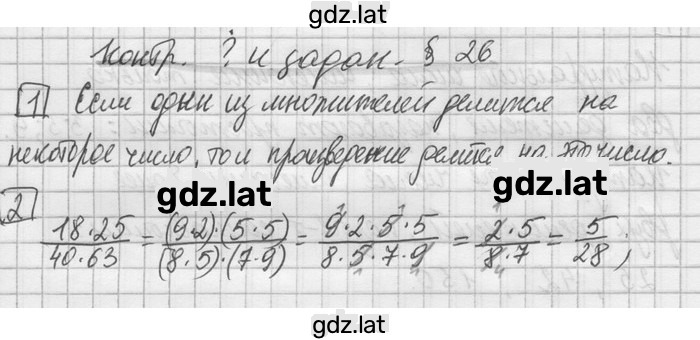 gdz.lat
Контр. ? и задан. § 26
1 Если один из множителей делится на
некоторое число, то и произведение делится на это число.
gdz.lat
gdz.lat
2 18·25/40·63 = (9·2)·(5·5)/(8·5)·(7·9) = 9·2·5·5/8·5·7·9 = 2·5/8·7 = 5/28;
gdz.lat